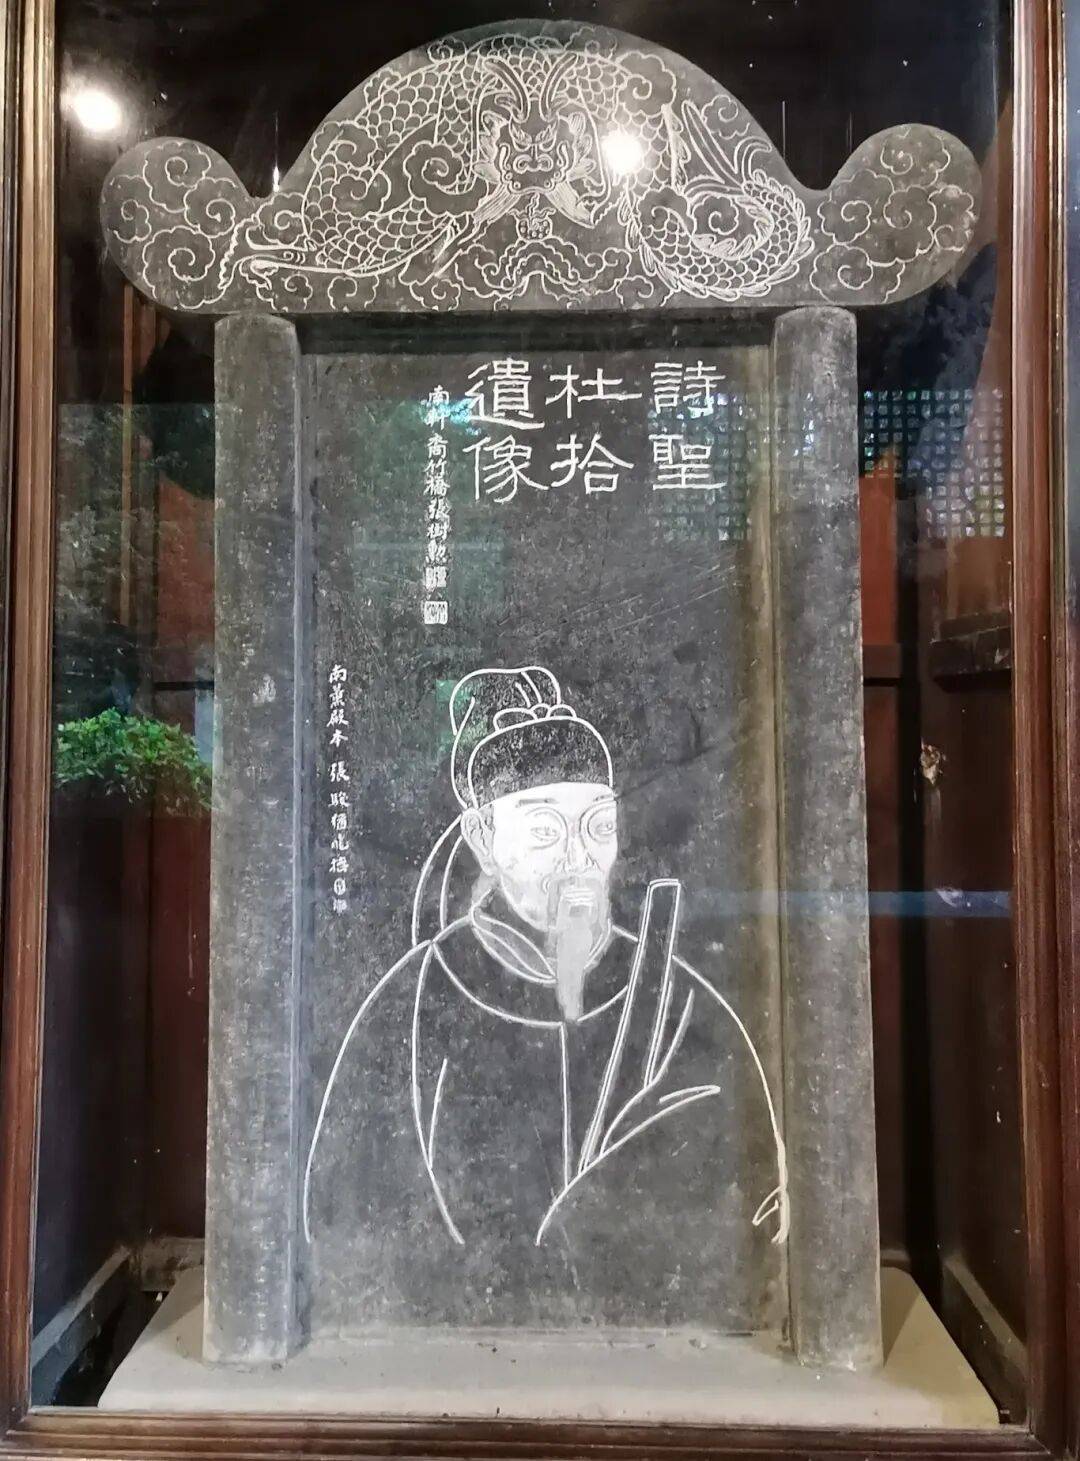 詩聖
杜拾
遺像
南軒裔竹橋張樹勲
南薰殿本 張駿猶𠃔摹